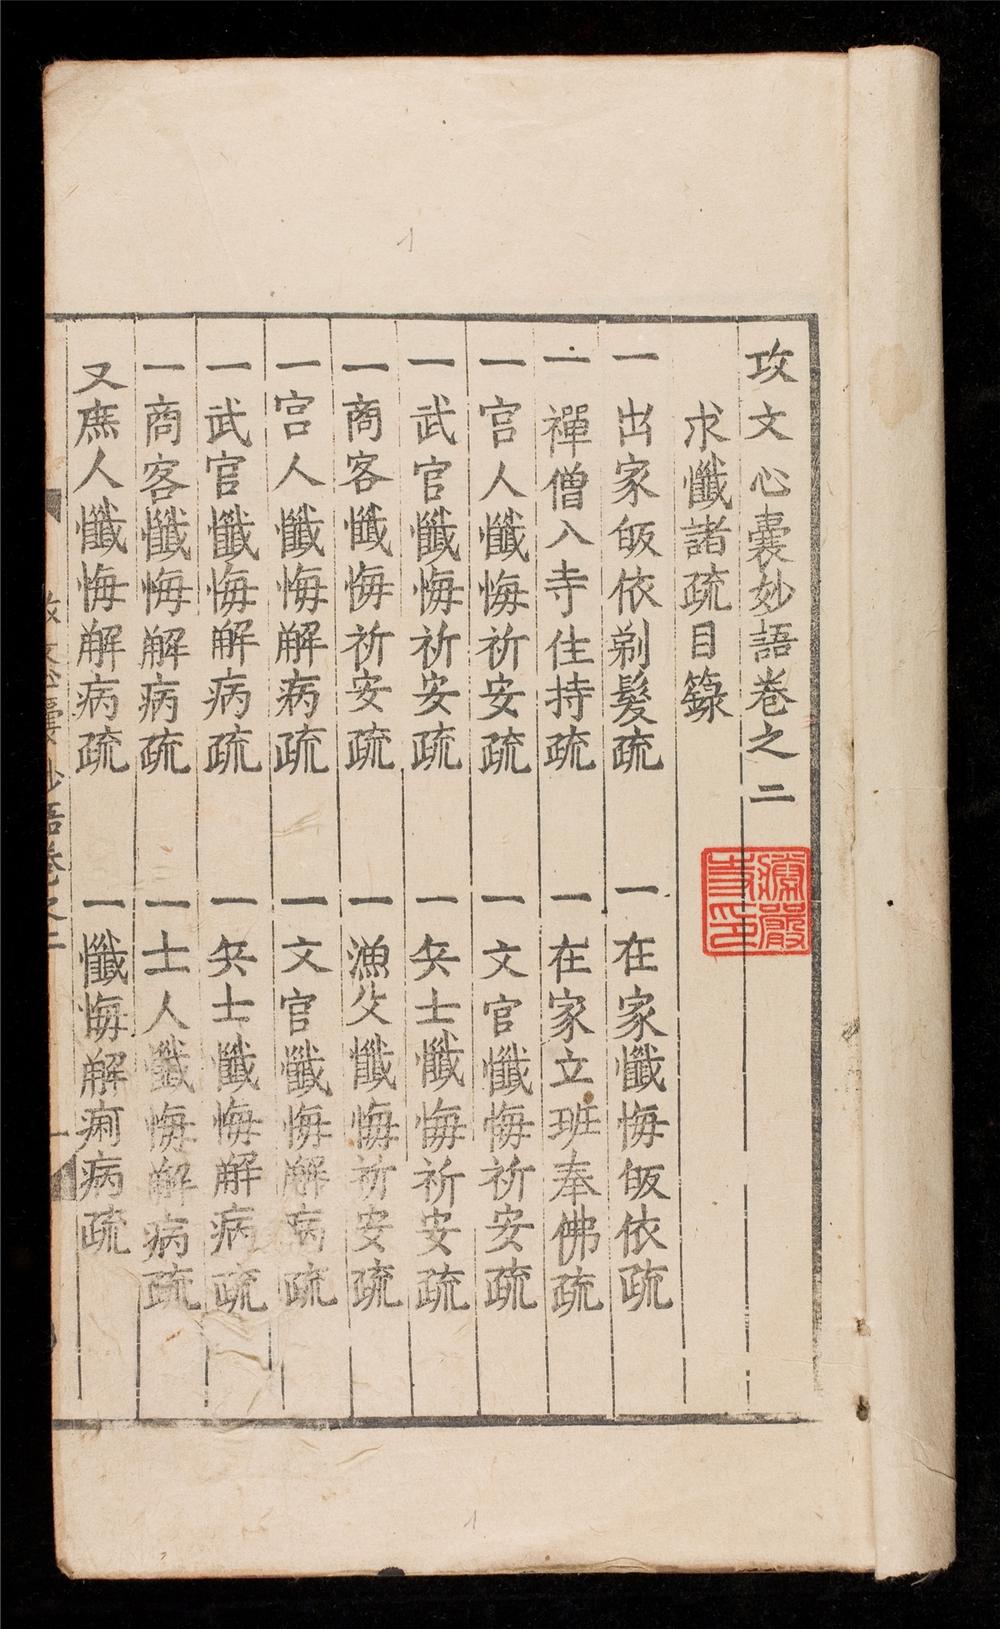 攻文心囊妙語卷之二
求懺諸疏目籙
一出家皈依剃髮疏　一在家懺悔皈依疏
一禪僧入寺住持疏　一在家立班奉佛疏
一宫人懺悔祈安疏　一文官懺悔祈安疏
一武官懺悔祈安疏　一兵士懺悔祈安疏
一商客懺悔祈安疏　一漁父懺悔祈安疏
一宫人懺悔解病疏　一文官懺悔解病疏
一武官懺悔解病疏　一兵士懺悔解病疏
一商客懺悔解病疏　一士人懺悔解病疏
又庶人懺悔解病疏　一懺悔解痢病疏
攻文心囊妙語卷之二　一